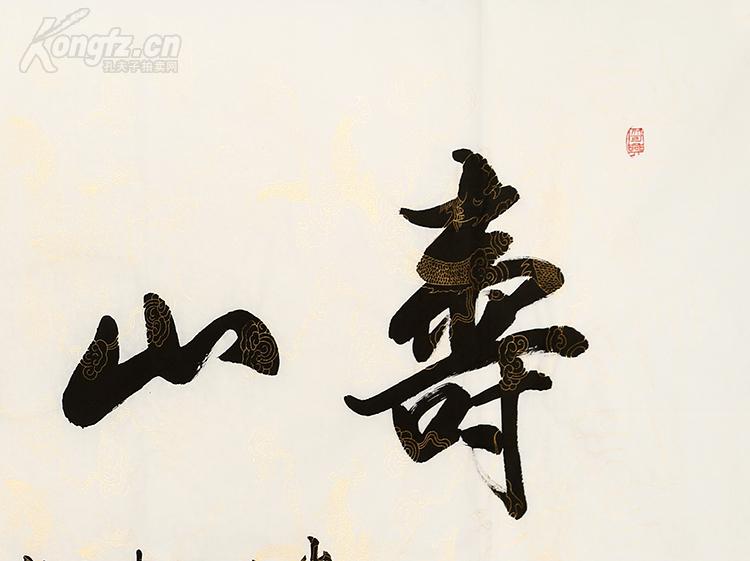 壽山
Kongfz.cn
孔夫子拍卖网